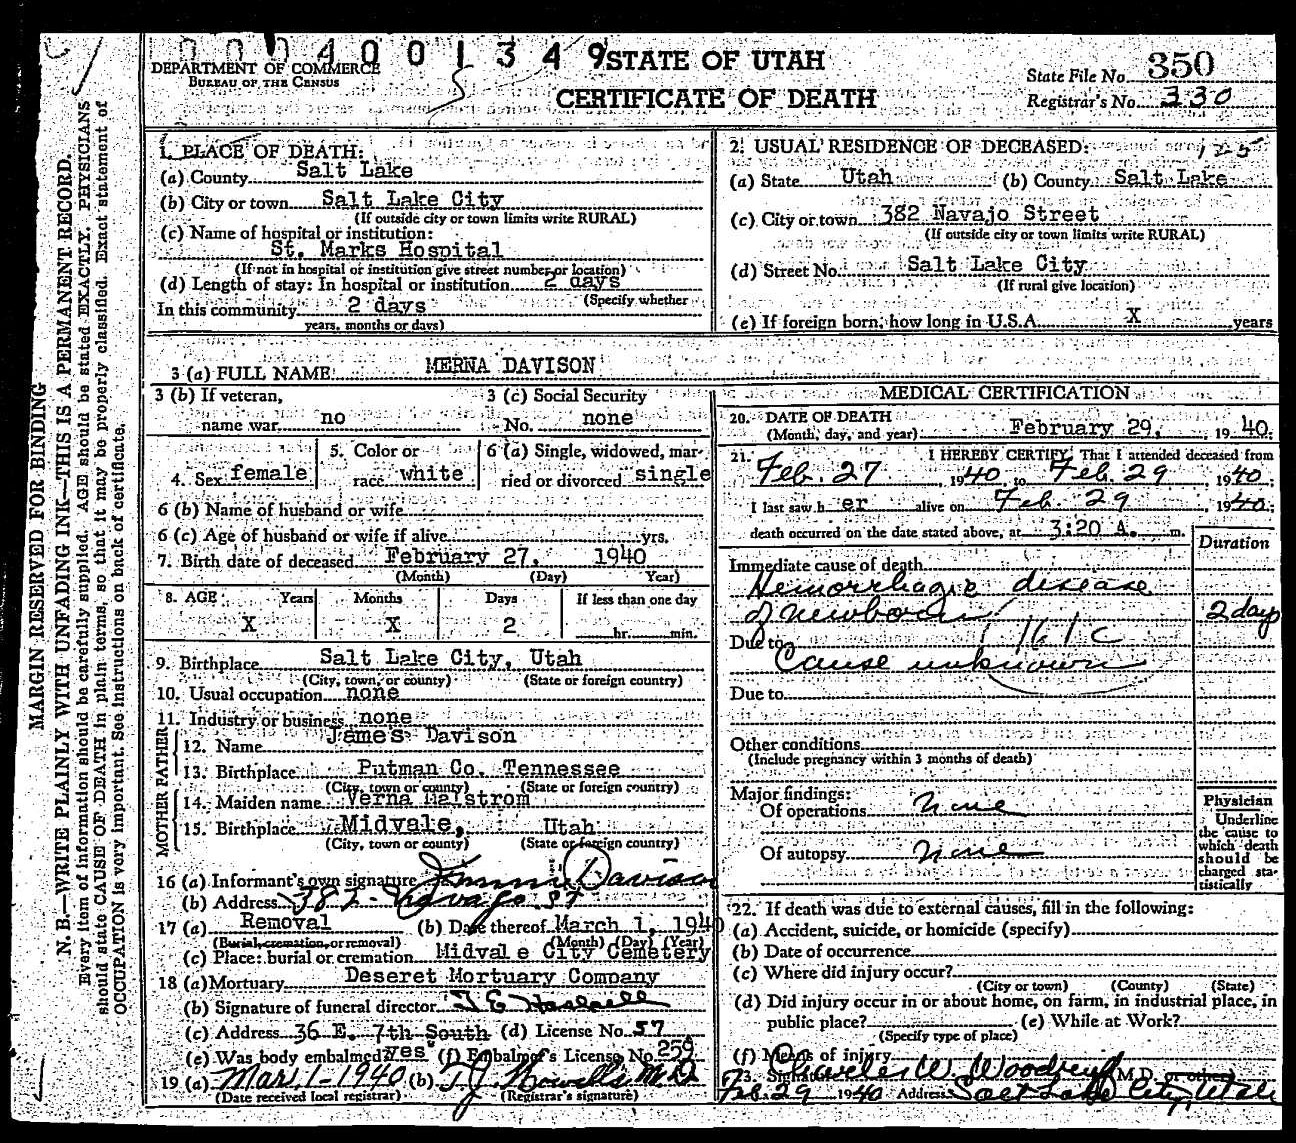 0004001349 STATE OF UTAH
DEPARTMENT OF COMMERCE
BUREAU OF THE CENSUS
CERTIFICATE OF DEATH
State File No. 350
Registrar's No. 330
1. PLACE OF DEATH:
(a) County Salt Lake
(b) City or town Salt Lake City
(If outside city or town limits write RURAL)
(c) Name of hospital or institution:
St. Marks Hospital
(If not in hospital or institution give street number or location)
(d) Length of stay: In hospital or institution 2 days
(Specify whether
In this community 2 days
years, months or days)
2. USUAL RESIDENCE OF DECEASED: 125
(a) State Utah (b) County Salt Lake
(c) City or town 382 Navajo Street
(If outside city or town limits write RURAL)
(d) Street No. Salt Lake City
(If rural give location)
(e) If foreign born, how long in U.S.A. X years
3 (a) FULL NAME MERNA DAVISON
3 (b) If veteran,
name war no
3 (c) Social Security
No. none
4. Sex female
5. Color or
race white
6 (a) Single, widowed, mar-
ried or divorced single
6 (b) Name of husband or wife
6 (c) Age of husband or wife if alive yrs.
7. Birth date of deceased February 27, 1940
(Month) (Day) Year)
8. AGE Years Months Days If less than one day
X X 2 hr. min.
9. Birthplace Salt Lake City, Utah
(City, town, or county) (State or foreign country)
10. Usual occupation none
11. Industry or business none
FATHER
12. Name James Davison
13. Birthplace Putman Co. Tennessee
(City, town or county) (State or foreign country)
MOTHER
14. Maiden name Verna Malstrom
15. Birthplace Midvale, Utah
(City, town or county) (State or foreign country)
16 (a) Informant's own signature Jimmie Davison
(b) Address 382 - Navajo St
17 (a) Removal (b) Date thereof March 1, 1940
(Burial, cremation, or removal) (Month) (Day) (Year)
(c) Place: burial or cremation Midvale City Cemetery
18 (a) Mortuary Deseret Mortuary Company
(b) Signature of funeral director
(c) Address 36 E. 7th South (d) License No. 57
(e) Was body embalmed? yes (f) Embalmer's License No. 259
19 (a) Mar. 1-1940 (b) T.J. Howells M.D.
(Date received local registrar) (Registrar's signature)
MEDICAL CERTIFICATION
20. DATE OF DEATH
(Month, day, and year) February 29, 1940.
21. I HEREBY CERTIFY, That I attended deceased from
Feb. 27, 1940, to Feb. 29, 1940.
I last saw h er alive on Feb. 29, 1940.
death occurred on the date stated above, at 3:20 A. m.
Duration
Immediate cause of death
Hemorrhagic disease
of newborn 2 days
161c
Due to
Cause unknown
Due to
Other conditions
(Include pregnancy within 3 months of death)
Major findings:
Of operations none
Of autopsy none
Physician
Underline
the cause to
which death
should be
charged sta-
tistically
22. If death was due to external causes, fill in the following:
(a) Accident, suicide, or homicide (specify)
(b) Date of occurrence
(c) Where did injury occur?
(City or town) (County) (State)
(d) Did injury occur in or about home, on farm, in industrial place, in
public place? (e) While at Work?
(Specify type of place)
(f) Means of injury
23. Signature Charles W. Woodruff M.D. or other
Feb. 29 1940 Address Salt Lake City, Utah
MARGIN RESERVED FOR BINDING
N. B.—WRITE PLAINLY WITH UNFADING INK—THIS IS A PERMANENT RECORD.
Every item of information should be carefully supplied. AGE should be stated EXACTLY. PHYSICIANS
should state CAUSE OF DEATH in plain terms, so that it may be properly classified. Exact statement of
OCCUPATION is very important. See instructions on back of certificate.